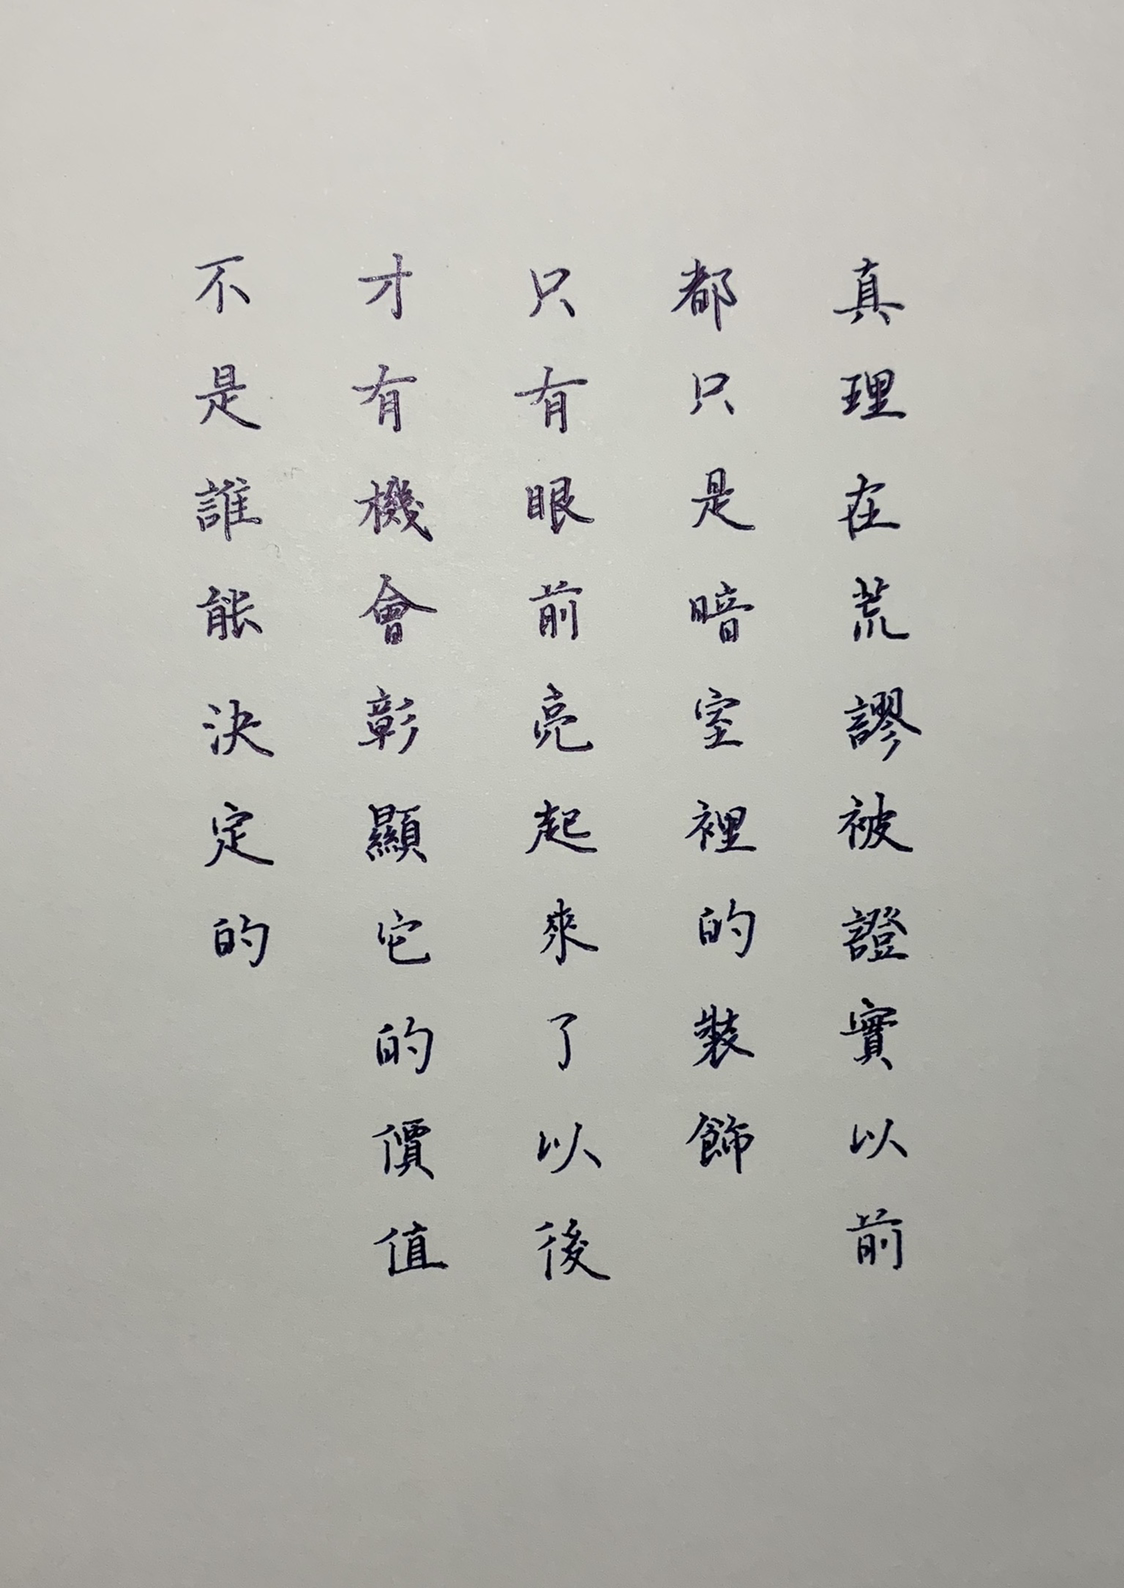 真理在荒謬被證實以前
都只是暗室裡的裝飾
只有眼前亮起來了以後
才有機會彰顯它的價值
不是誰能決定的